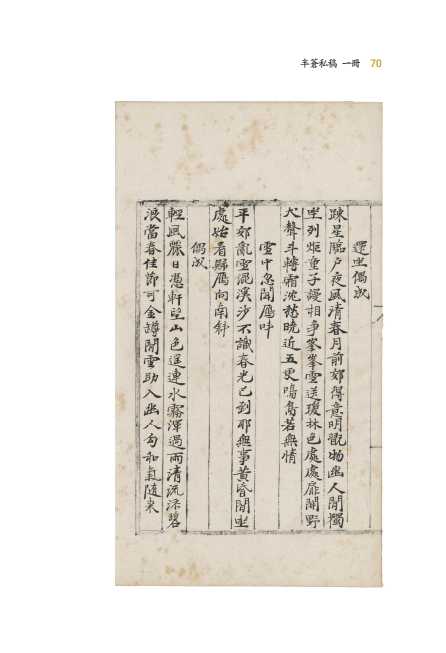 半蒼私稿 一冊 70
還坐偶成
踈星臨戶夜風清春月前郊得意明觀物幽人開獨
坐列炬童子謾相爭峯峯雪送瓊林色處處扉開野
犬聲斗轉霜流愁曉近五更鳴鴈若無情
雪中忽聞鴈呌
平郊亂雪混溪沙不識春光已到耶無事黃昏閒坐
處始看歸鴈向南斜
偶成
輕風麗日憑軒望山色遥連水霧渾過雨清流添碧
浪當春佳節可金罇開雲助入幽人句和氣隨來